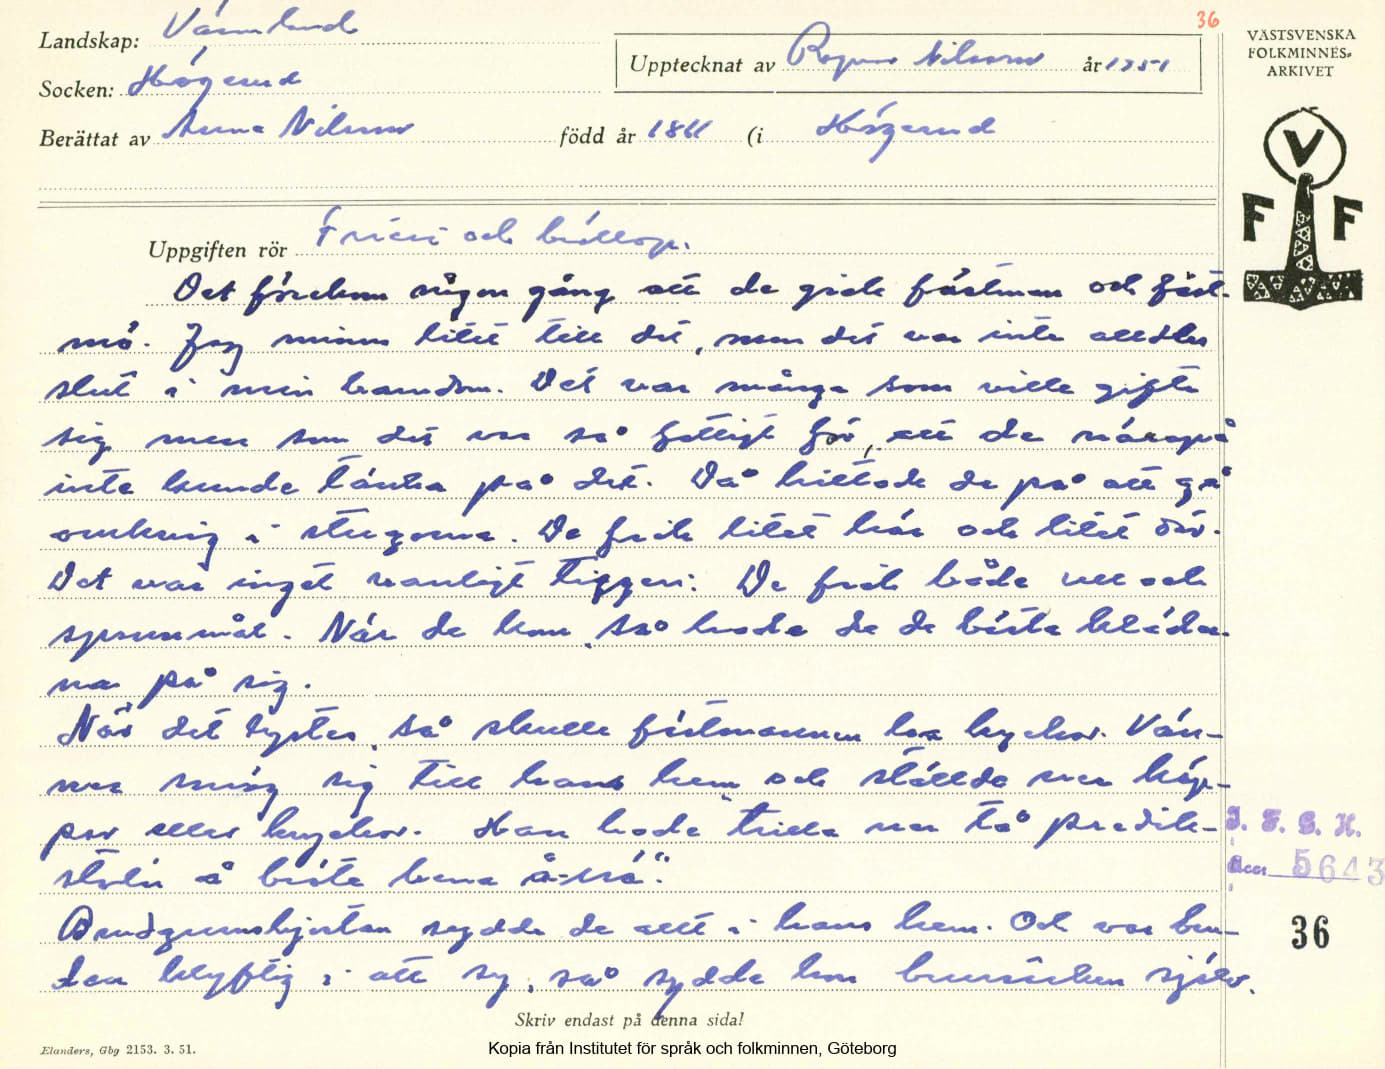 36
VÄSTSVENSKA
FOLKMINNES-
ARKIVET
V
F F
Landskap: Värmland
Socken: Högerud
Upptecknat av Ragnar Nilsson år 1951
Berättat av Anna Nilsson född år 18 (i Högerud
Uppgiften rör Frieri och bröllop.
Det förekom någon gång att de gick fästman och fäst-
mö. Jag minns litet till det, men det var inte alldeles
slut i min barndom. Det var många som ville gifta
sig men som det var så fattigt för, att de närapå
inte kunde tänka på det. Då hittade de på att gå
omkring i stugorna. De fick litet här och litet där.
Det var inget vanligt tiggeri. De fick både ull och
spannmål. När de kom, så hade de de bästa kläder-
na på sig.
När det lystes, så skulle fästmannen ha kryckor. Vän-
ner smög sig till hans hem och ställde upp käp-
par eller kryckor. Han hade "trilla ner tå predik-
stoln å bröte bena å-sä".
Brudgumskjortan sydde de allt i hans hem. Och var bru-
den klyftig i att sy, så sydde hon brudn själv.
I. F. G. H.
Acc. 5643
36
Skriv endast på denna sida!
Elanders, Gbg 2153. 3. 51.
Kopia från Institutet för språk och folkminnen, Göteborg